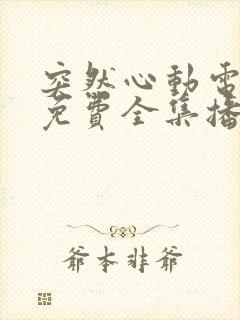 突然心動電
免費全集播
爺本非爺